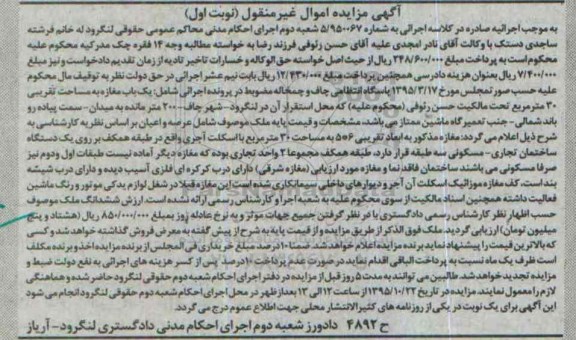 آگهی مزایده اموال غیرمنقول (نوبت اول)
به موجب اجرائیه صادره در کلاسه اجرائی به شماره ۵/۹۵۰۰۶۷ شعبه دوم اجرای احکام مدنی محاکم عمومی حقوقی لنگرود له خانم فرشته
ساجدی دستک با وکالت آقای نادر امجدی علیه آقای حسن رئوفی فرزند رضا به خواسته مطالبه وجه ۱۴ فقره چک مدرکیه محکوم علیه
محکوم است به پرداخت مبلغ ۲۴۸/۶۰۰/۰۰۰ ریال از حیث اصل خواسته حق الوکاله و خسارات تاخیر تادیه از زمان تقدیم دادخواست و نیز مبلغ
۷/۴۰۰/۰۰۰ ریال بعنوان هزینه دادرسی همچنین پرداخت مبلغ ۱۲/۴۳۰/۰۰۰ ریال بابت نیم عشر اجرائی در حق دولت نظر به توقیف مال محکوم
علیه حسب صورتمجلس مورخ ۱۳۹۵/۳/۱۷ پاسگاه انتظامی چاف و چمخاله مضبوط در پرونده اجرائی شامل: یک باب مغازه به مساحت تقریبی
۳۰ مترمربع تحت مالکیت حسن رئوفی (محکوم علیه) که محل استقرار آن در لنگرود- شهر چاف- ۲۰۰ متر مانده به میدان- سمت پیاده رو
باند شمالی- جنب تعمیرگاه ماشین ممتاز می باشد، مشخصات و قیمت پایه ملک موصوف شامل عرصه و اعیان بر اساس نظریه کارشناسی به
شرح ذیل اعلام می گردد: مغازه مذکور به ابعاد تقریبی ۶*۵ به مساحت ۳۰ مترمربع با اسکلت آجری واقع در طبقه همکف بر روی یک دستگاه
ساختمان تجاری- مسکونی سه طبقه قرار دارد، طبقه همکف مجموعا ۲ واحد تجاری بوده که مغازه دیگر آماده نیست طبقات اول و دوم نیز
صرفا مسکونی می باشند ساختمان فاقد نما و مغازه مورد ارزیابی (مغازه شرقی) دارای درب کرکره ای فلزی آسیب دیده و دارای درب شیشه
بند است، کف مغازه موزائیک اسکلت آن آجر و دیوارهای داخلی سیمانکاری شده است این مغازه قبلا در شغل لوازم یدکی موتور و رنگ ماشین
فعالیت داشته همچنین اسناد مالکیت از سوی محکوم علیه به شعبه اجرا و کارشناس رسمی ارائه نشده است. ارزش ششدانگ ملک موصوف
حسب اظهار نظر کارشناس رسمی دادگستری با در نظر گرفتن جمیع جهات موثر و به نرخ عادله روز بمبلغ ۸۵۰/۰۰۰/۰۰۰ ریال (هشتاد و پنج
میلیون تومان) ارزیابی گردید. ملک فوق الذکر از طریق مزایده و از قیمت پایه به شرح از پیش گفته به معرض فروش گذاشته خواهد شد و کسی
که بالاترین قیمت را پیشنهاد نماید برنده مزایده اعلام خواهد شد. ضمنا ۱۰ درصد مبلغ خریداری فی المجلس از برنده مزایده اخذ و برنده مکلف
است ظرف یک ماه نسبت به پرداخت الباقی اقدام نماید در صورت عدم پرداخت ۱۰ درصد پس از کسر هزینه های اجرائی به نفع دولت ضبط و
مزایده تجدید خواهد شد. طالبین می توانند به مدت ۵ روز قبل از مزایده در دفتر اجرای احکام شعبه دوم حقوقی لنگرود حاضر شده و هماهنگی
لازم را معمول نمایند. مزایده در تاریخ ۱۳۹۵/۱۰/۲۲ از ساعت ۱۲ الی ۱۳ بعدازظهر در محل اجرای احکام شعبه دوم حقوقی لنگرود انجام می شود
این آگهی برای یک نوبت در یکی از روزنامه های کثیرالانتشار محلی جهت اطلاع عموم درج می گردد.
ح ۴۸۹۲ دادورز شعبه دوم اجرای احکام مدنی دادگستری لنگرود- آریاز